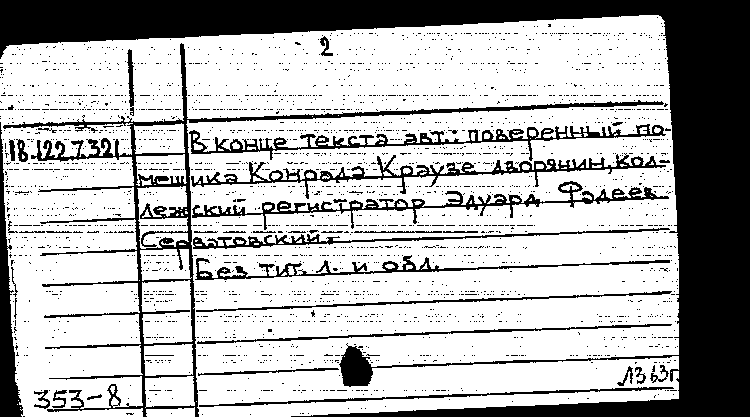 2
18.122.7.321. В конце текста авт.: поверенный по-
мещика Конрада Краузе дворянин, кол-
лежский регистратор Эдуард Фадеев
Серватовский.
Без тит. л. и обл.
353-8.